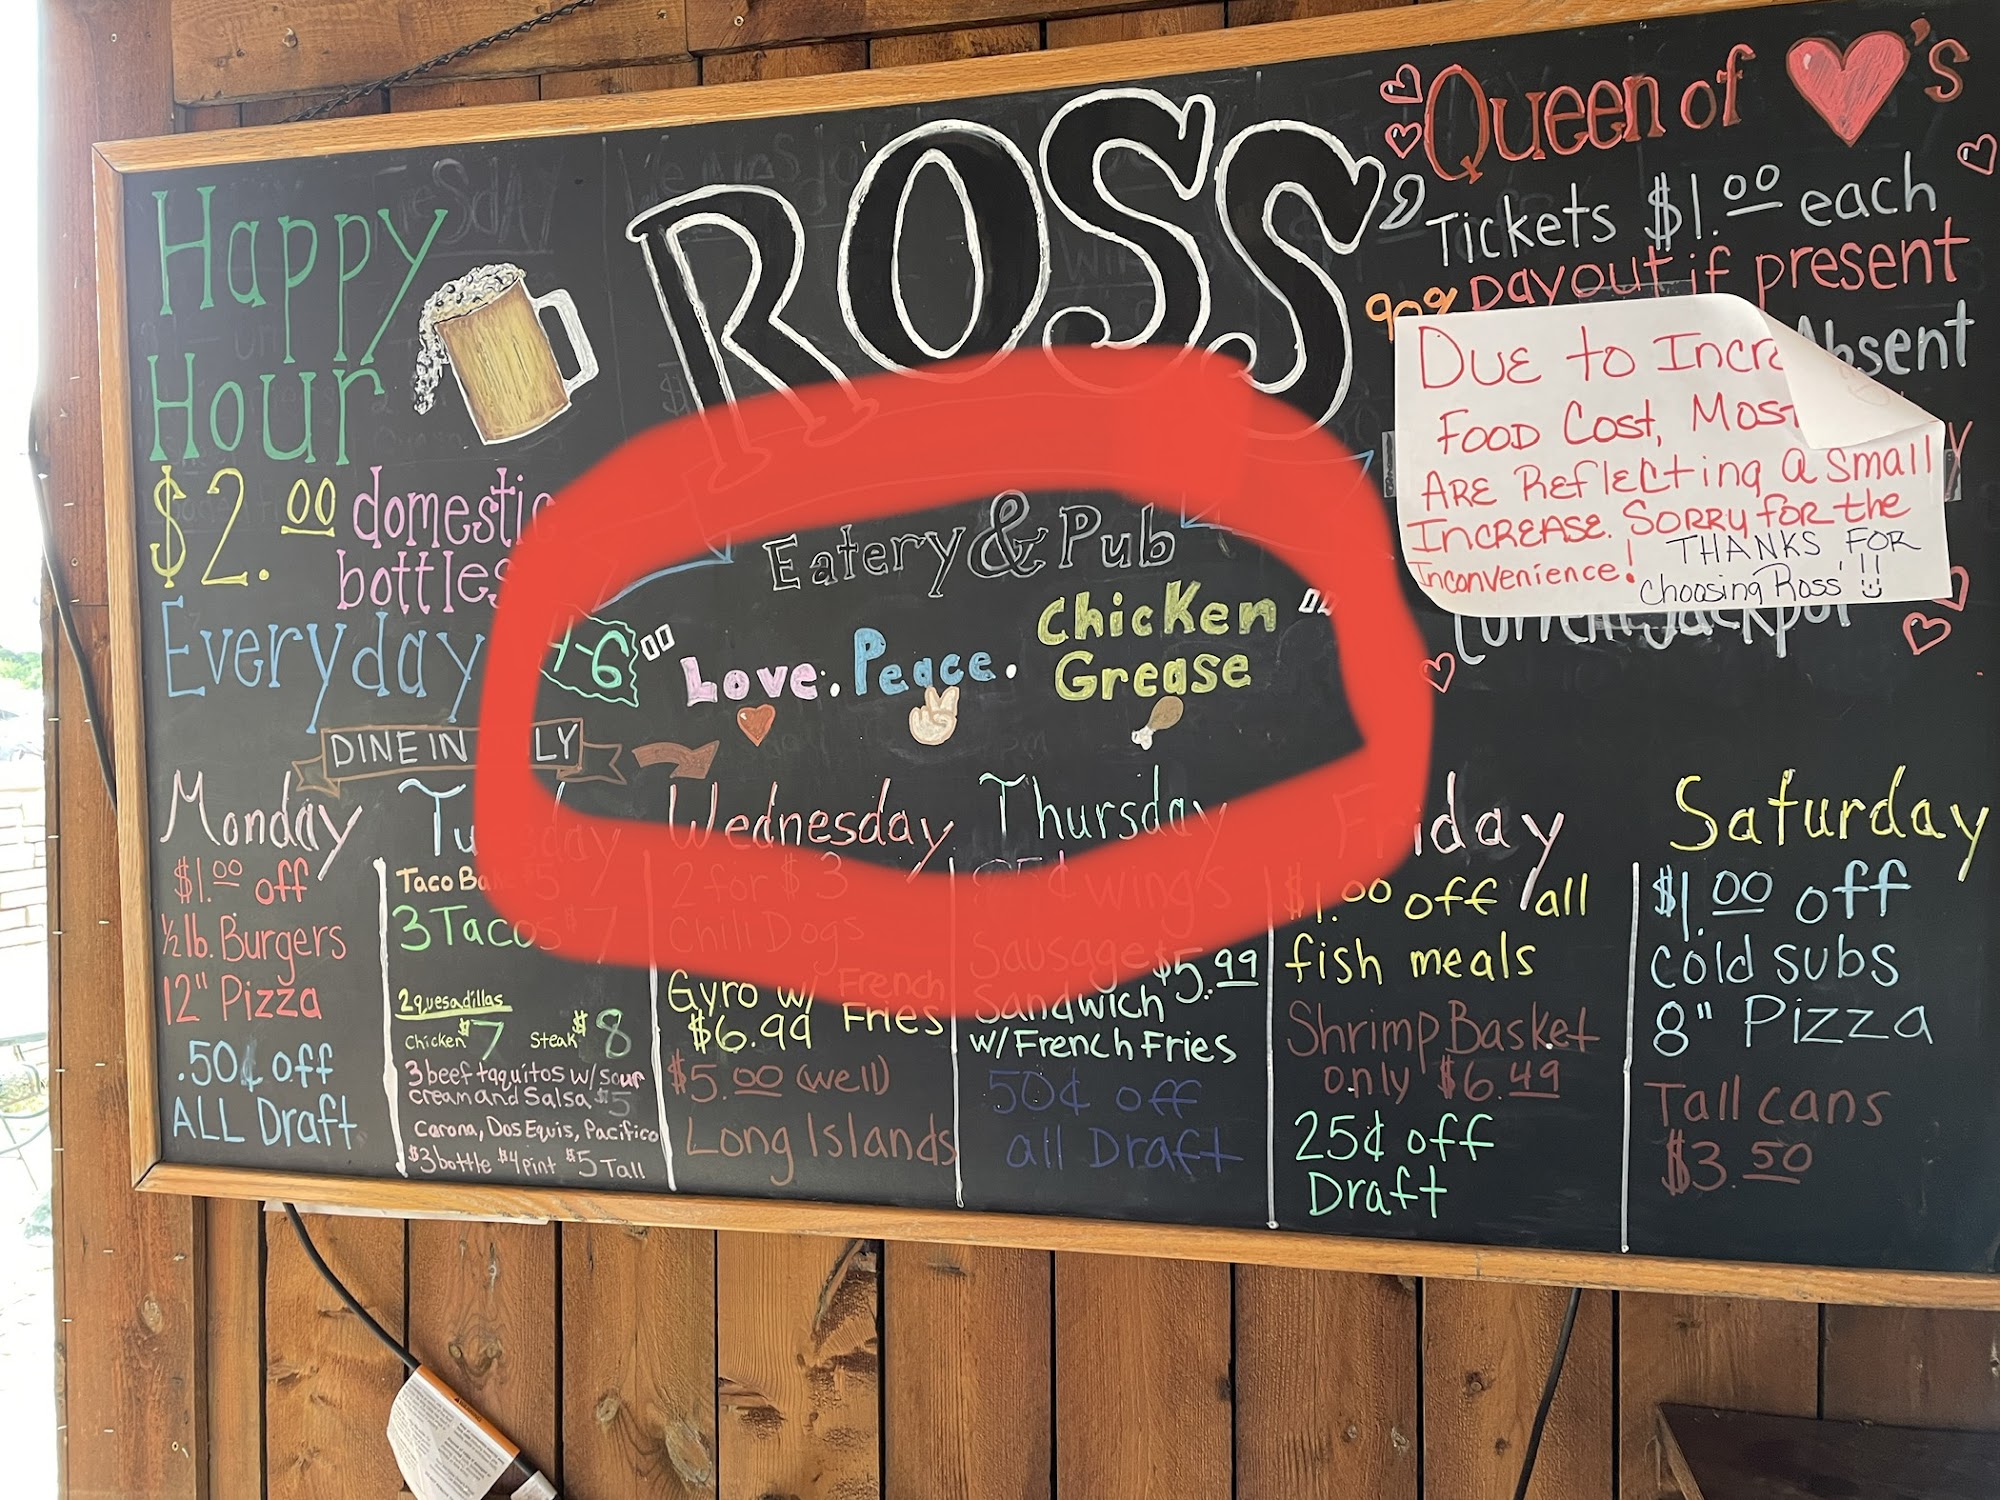 Happy
Hour
$2.00 domestic
bottles
Everyday 4-6
DINE IN LY
ROSS'
Eatery & Pub
"Love. Peace. Chicken
Grease"
Queen of 's
Tickets $1.00 each
90% payout if present
Absent
DUE to Incre
FOOD COST, MOST
ARE Reflecting a small
INCREASE. SORRY for the
Inconvenience! THANKS FOR
Choosing Ross' !!
Current Jackpot
Monday
$1.00 off
1/2 lb. Burgers
12" Pizza
.50¢ off
ALL Draft
Tuesday
Taco Ba $5
3 Tacos $7
2 quesadillas
Chicken $7 Steak $8
3 beef taquitos w/ sour
cream and Salsa $5
Carona, Dos Equis, Pacifico
$3 bottle $4 pint $5 Tall
Wednesday
2 for $3
Chili Dogs
Gyro w/ French
$6.99 Fries
$5.00 (well)
Long Islands
Thursday
¢ wings
Sausage $5.99
Sandwich
w/ French Fries
50¢ off
all Draft
Friday
$1.00 off all
fish meals
Shrimp Basket
only $6.49
25¢ off
Draft
Saturday
$1.00 off
cold subs
8" Pizza
Tall cans
$3.50